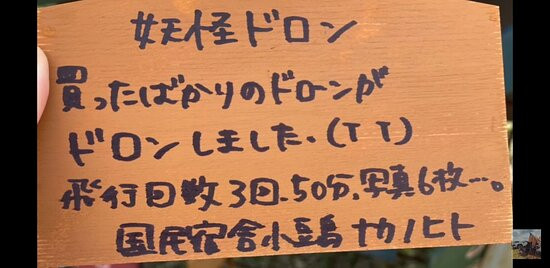 妖怪ドロン
買ったばかりのドローンが
ドロンしました.(TT)
飛行日数3日、50分、写真6枚…。
国民宿舎小豆島 ナカノヒト